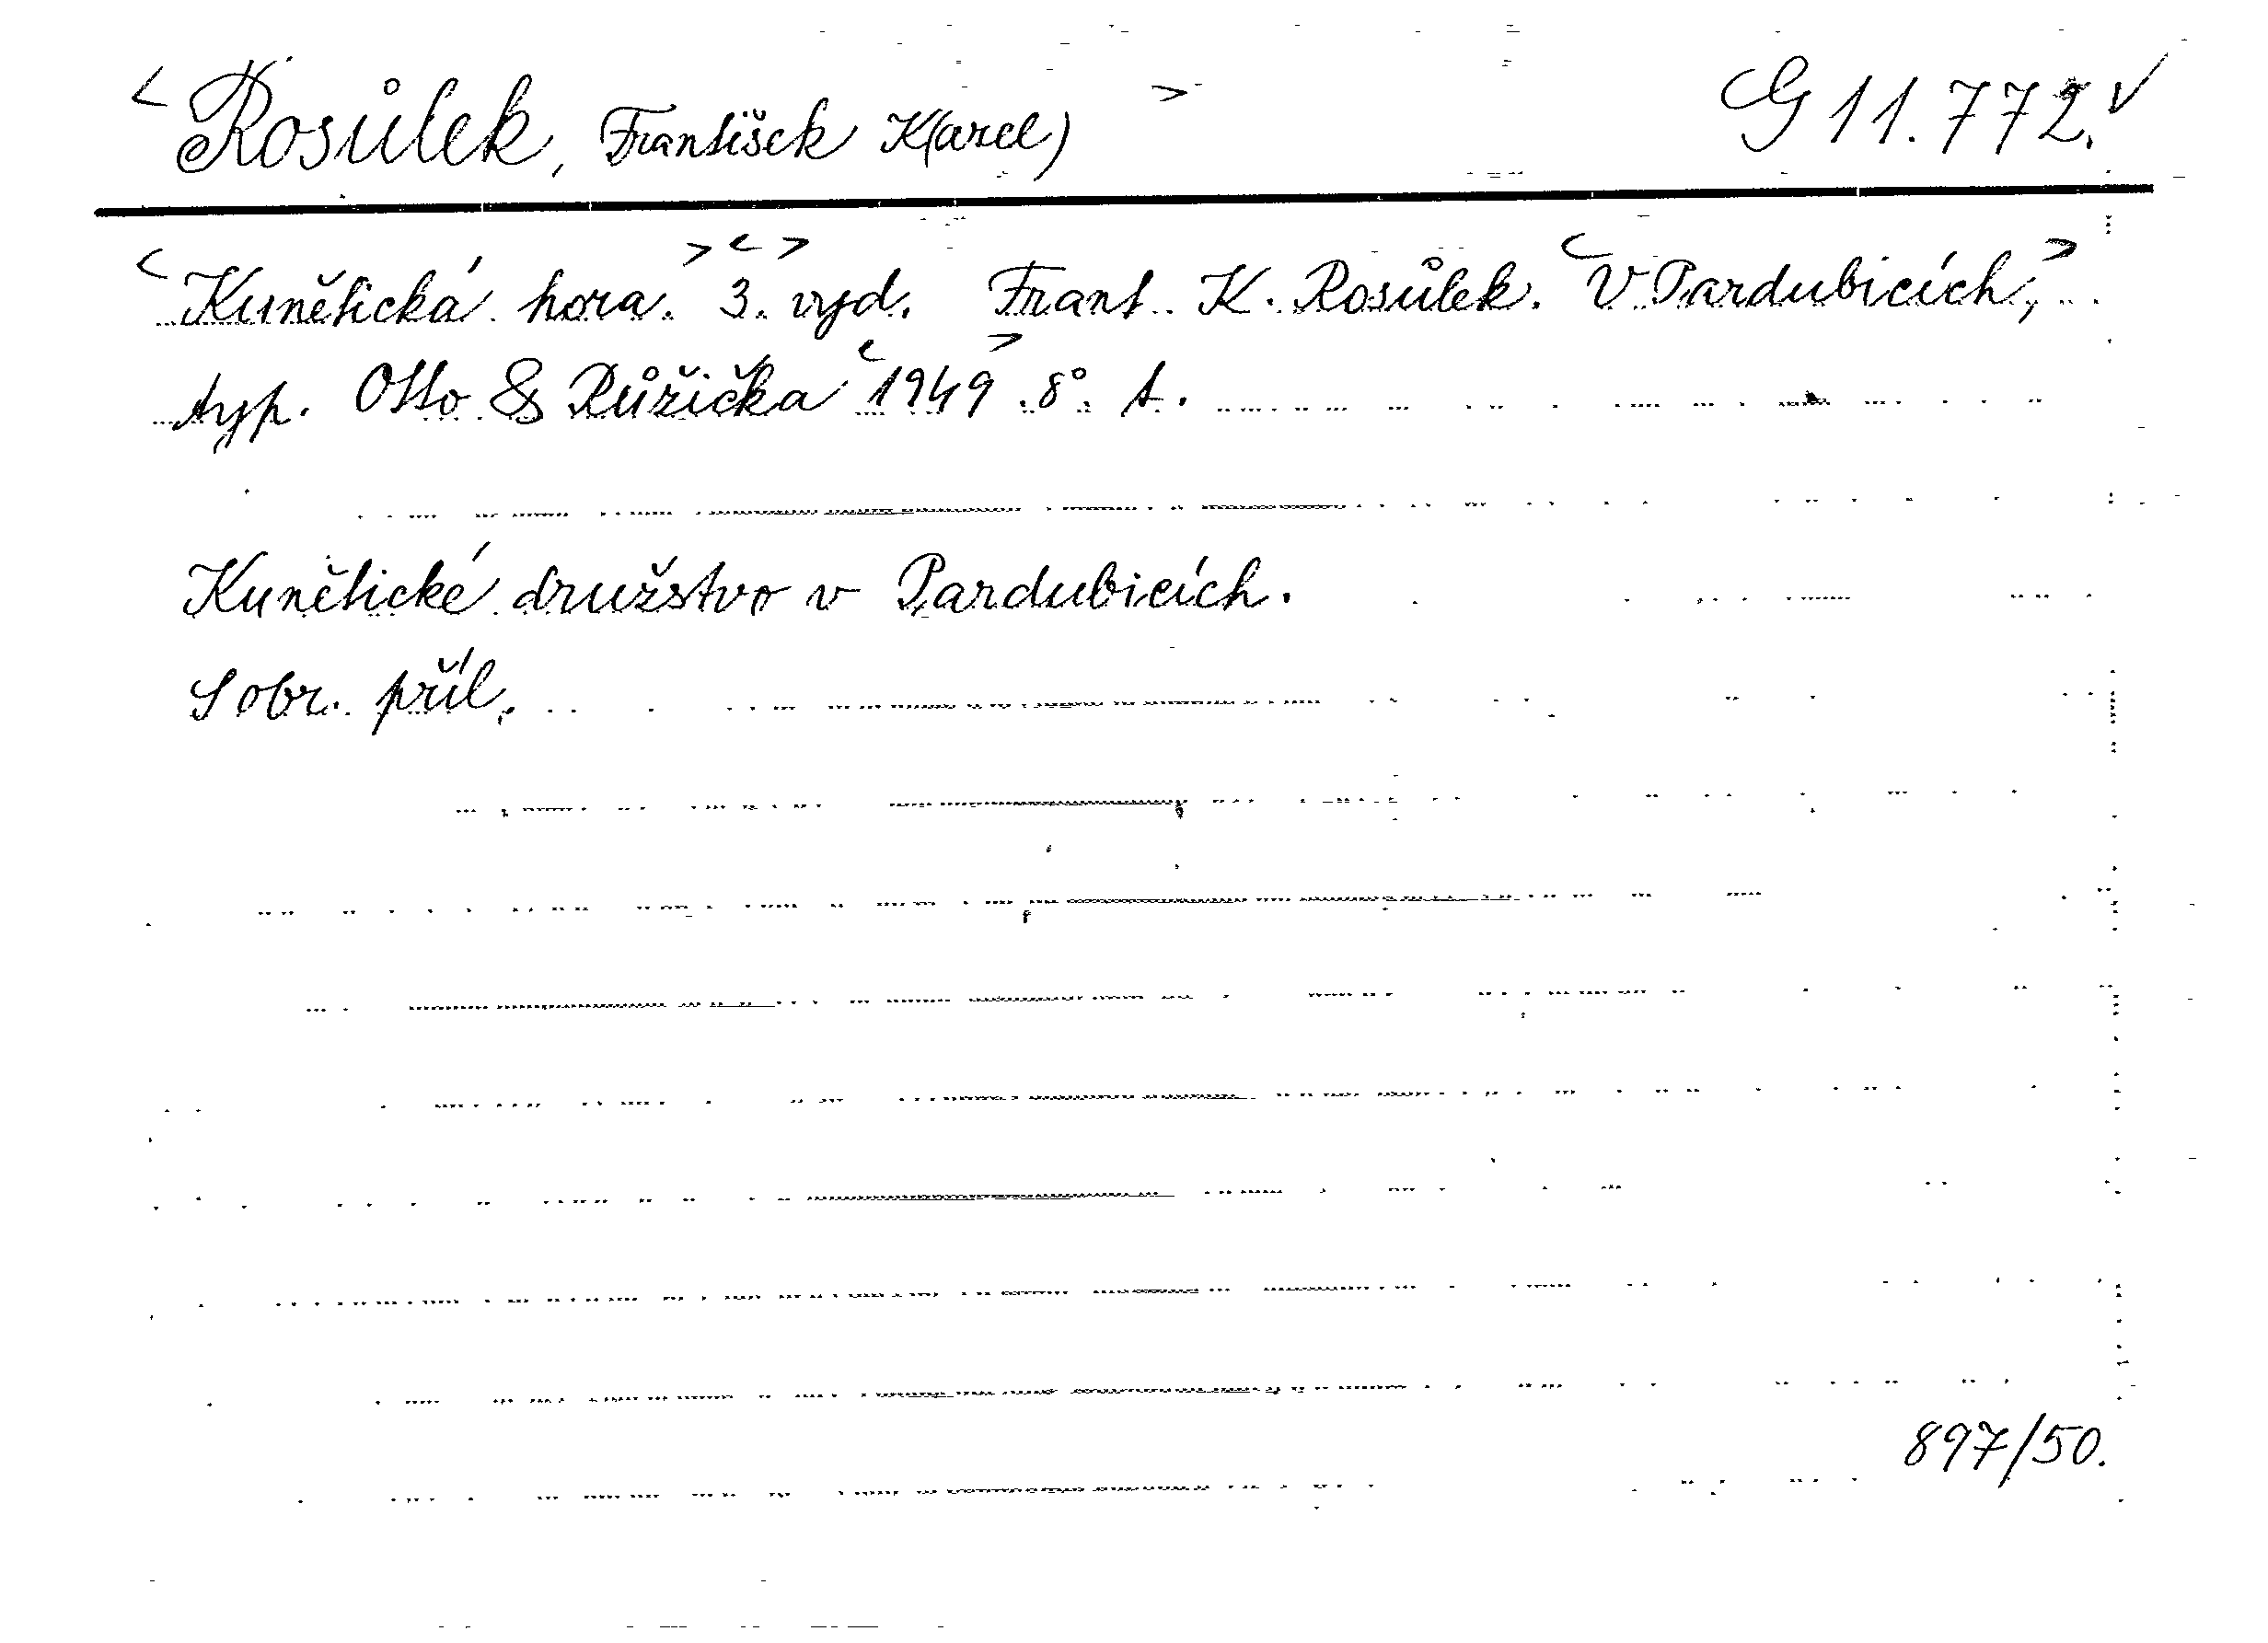 < Rosůlek, František K(arel) > G 11.772. √
< Kunětická hora. > < 3. > vyd. Frant. K. Rosůlek. < V Pardubicích, >
typ. Otto & Růžička < 1949 > . 8°. s.
Kunětické družstvo v Pardubicích.
S obr. příl.
897/50.